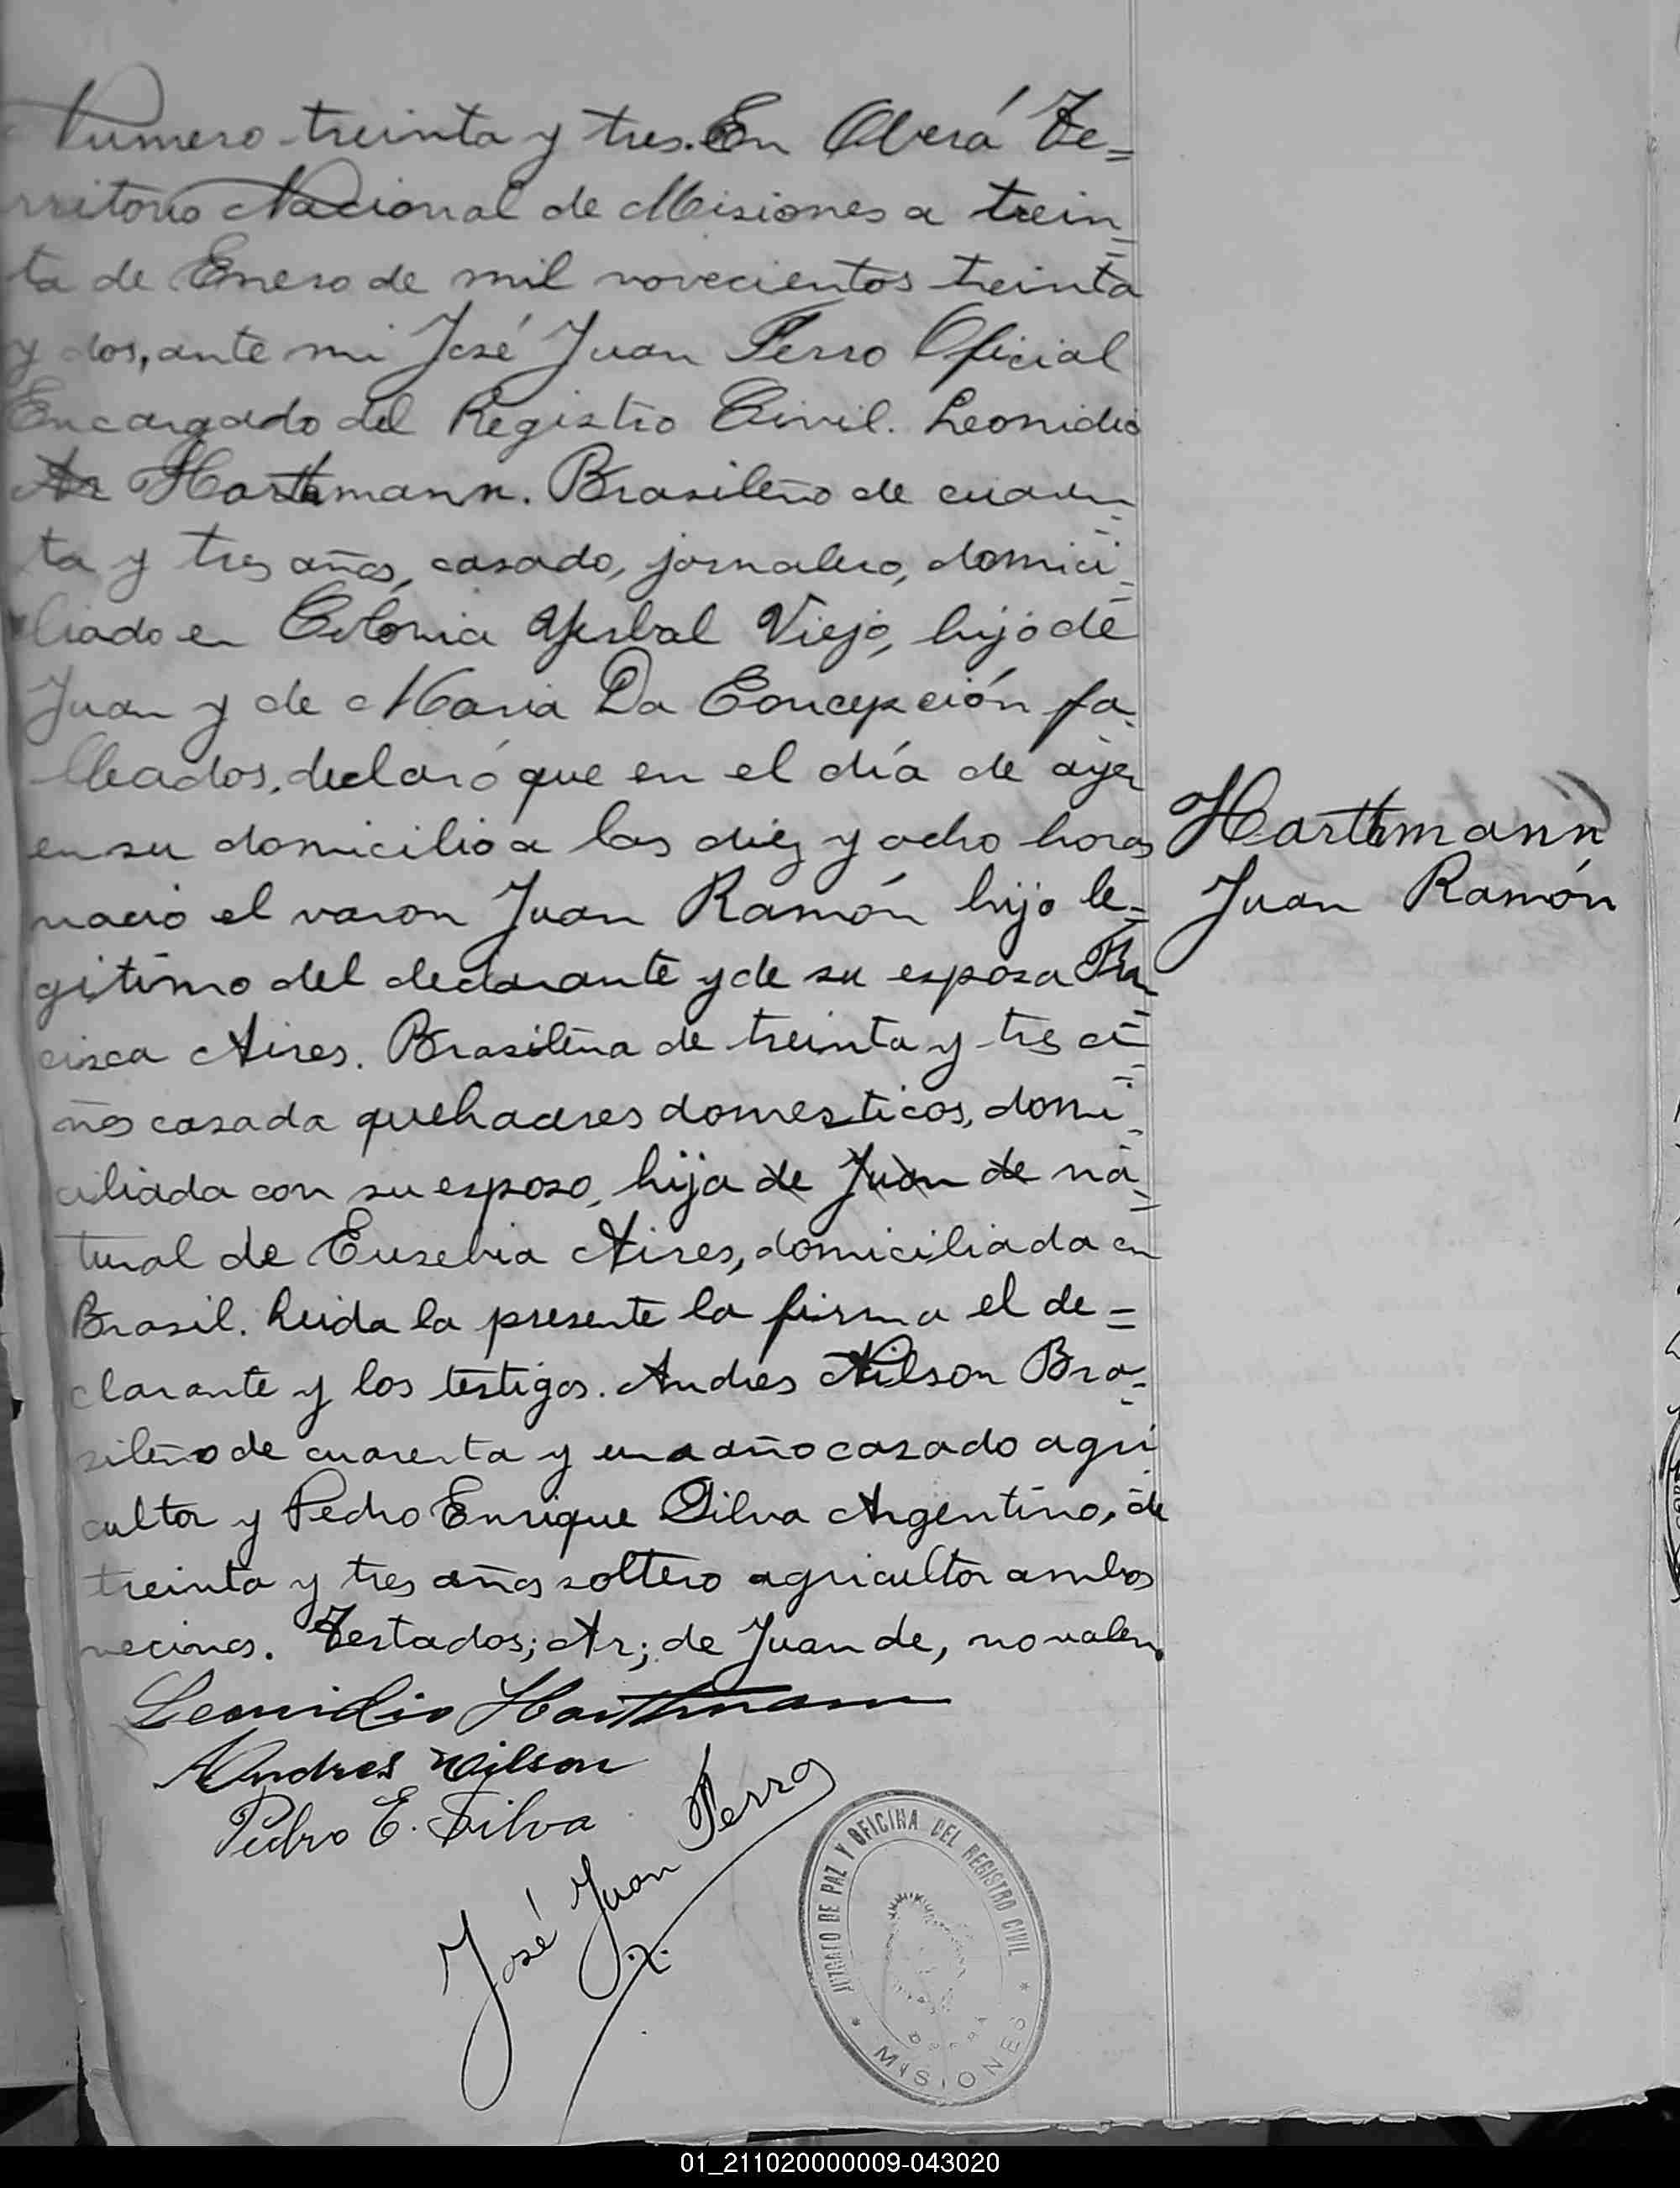 Numero treinta y tres. En Oberá Te=
rritorio Nacional de Misiones a trein=
ta de Enero de mil novecientos treinta
y dos, ante mi José Juan Ferro Oficial
Encargado del Registro Civil. Leonidio
Ar Harthmann. Brasileño de cuaren=
ta y tres años, casado, jornalero, domici=
liado en Colonia Yerbal Viejo, hijo de
Juan y de Maria Da Concepción fa=
llecidos, declaró que en el día de ayer
en su domicilio a las diez y ocho horas
nació el varon Juan Ramón hijo le=
gitimo del declarante y de su esposa Fran
cisca Aires. Brasileña de treinta y tres a=
ños casada quehaceres domesticos, domi=
ciliada con su esposo, hija de Juan de na=
tural de Eusebia Aires, domiciliada en
Brasil. Leida la presente la firma el de=
clarante y los testigos. Andres Nilson Bra=
sileño de cuarenta y un año casado agri
cultor y Pedro Enrique Silva Argentino, de
treinta y tres años soltero agricultor ambos
vecinos. Testados; Ar; de Juan de, no valen.
Harthmann
Juan Ramón
Leonidio Harthmann
Andres Nilson
Pedro E. Silva
José Juan Ferro
JUZGADO DE PAZ Y OFICINA DEL REGISTRO CIVIL
OBERA
* MISIONES *
01_211020000009-043020